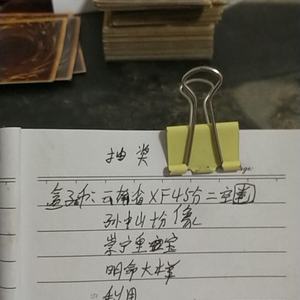 抽奖
盒子币:云南省XF45分二空圈
孙中山拾像
崇宁重宝
明命大样
利用